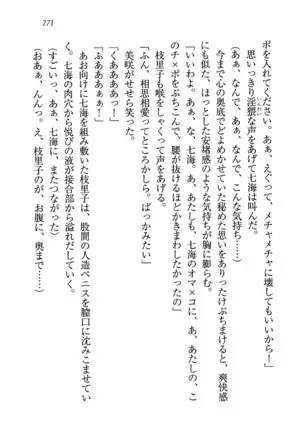 271
ポを入れてください。ああ、えぐって、メチャメチャに壊してもいいから！」
思いっきり淫猥な声をあげて七海は叫んだ。
（あぁ、なんで、あぁ、なんで、こんな気持ち……）
今まで心の奥底でどよめかせていた秘めた思いをありったけぶちまけると、爽快感
にも似た、ほっとした安堵感のような気持ちが胸に膨らむ。
「いいわよ。あぁ、な、七海。あ、あたしも、七海のオマ×コに、あ、あたしの、こ
のチ×ポをぶちこんで、腰が抜けるほどかきまわしたかったの」
枝里子も喉をしゃくって声をあげる。
「ふん、相思相愛ってところかしら。ばっかみたい」
美咲がせせら笑った。
「くああああっ！」
「ふああああぁ！」
あお向けに七海を組み敷いた枝里子は、股間の人造ペニスを膣口に沈みこませてい
く。七海の肉穴から悦びの液が接合部から溢れだしていく。
（すごいぃ。あぁぁ。七海に、またつながった）
（おあぁ、んんっ。え、枝里子のが、お腹に、奥まで……）